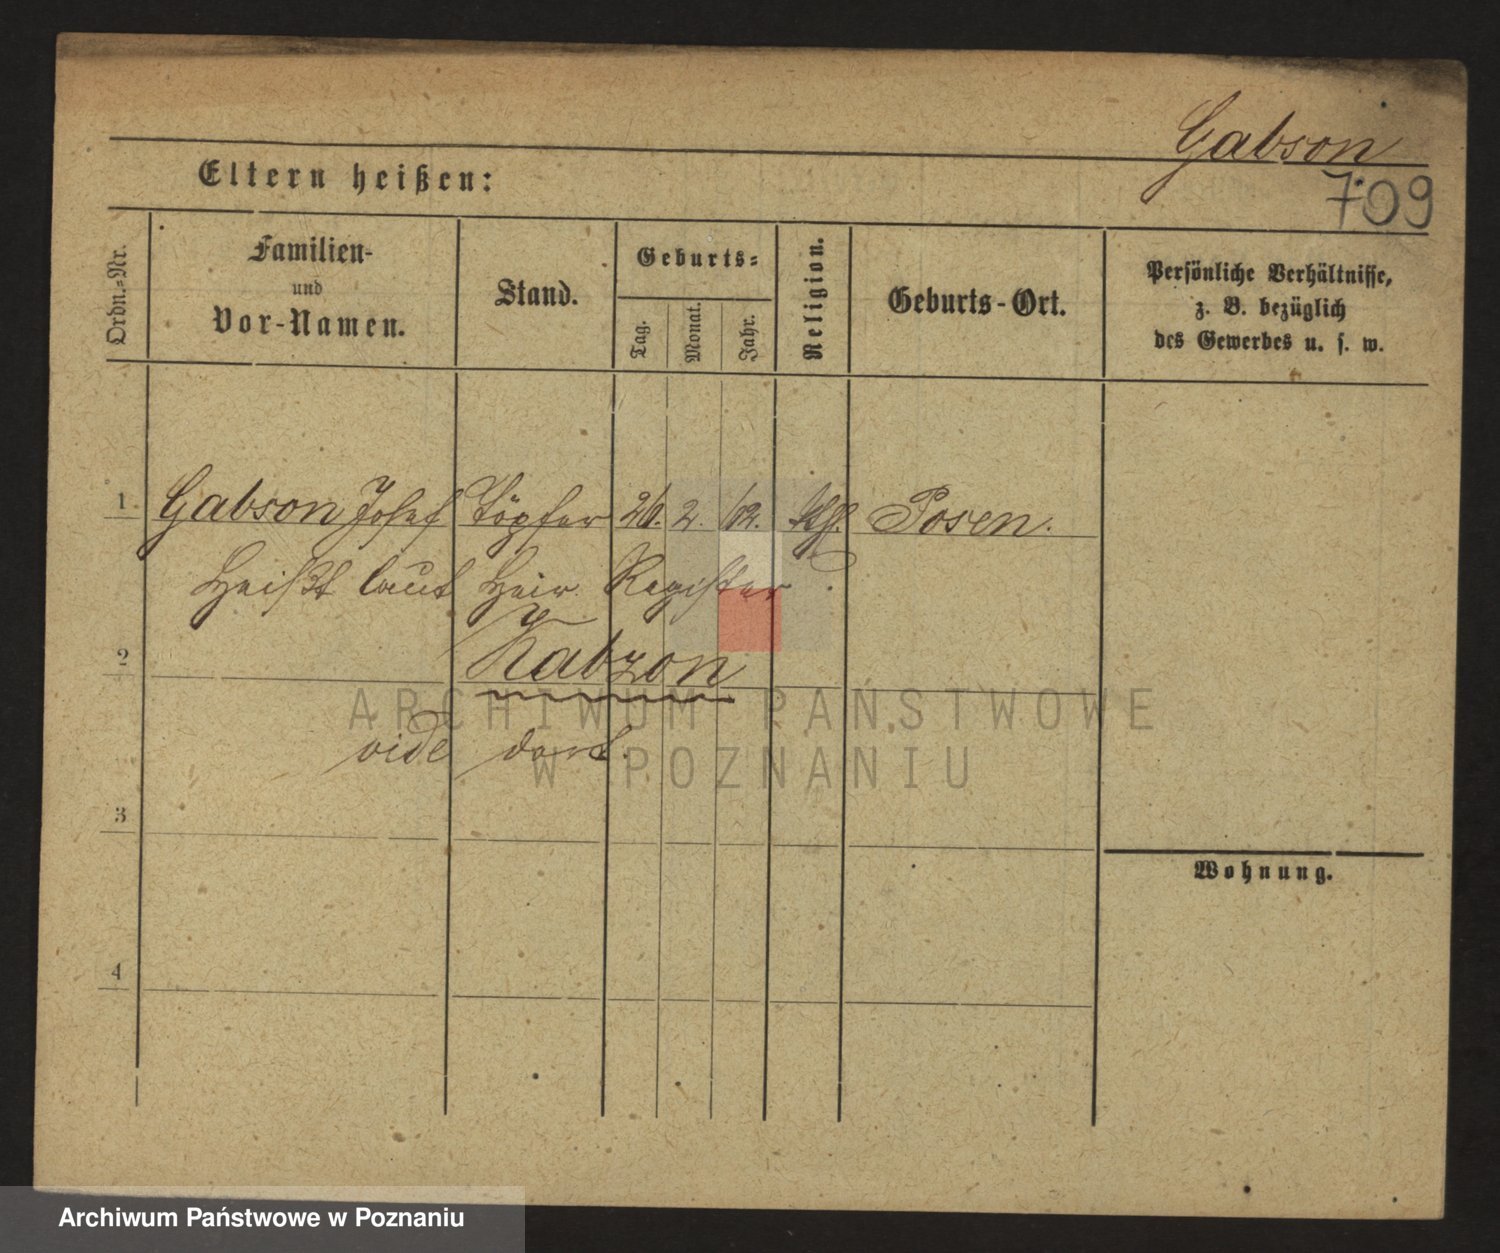 Gabson
709
Eltern heißen:
Ordn.-Nr.
Familien-
und
Vor-Namen.
Stand.
Geburts-
Tag.
Monat.
Jahr.
Religion.
Geburts-Ort.
Persönliche Verhältnisse,
z. B. bezüglich
des Gewerbes u. s. w.
1 Gabson Josef Töpfer 26. 2. 62. Posen.
Heißt laut Heir. Register
2 Kabzon
vide dort.
3
Wohnung.
4
ARCHIWUM PAŃSTWOWE
W POZNANIU
Archiwum Państwowe w Poznaniu